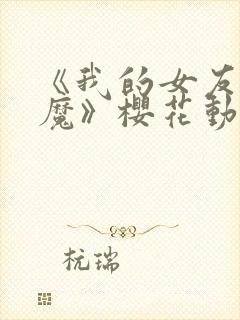 《我的女友
魔》櫻花動
杭瑞